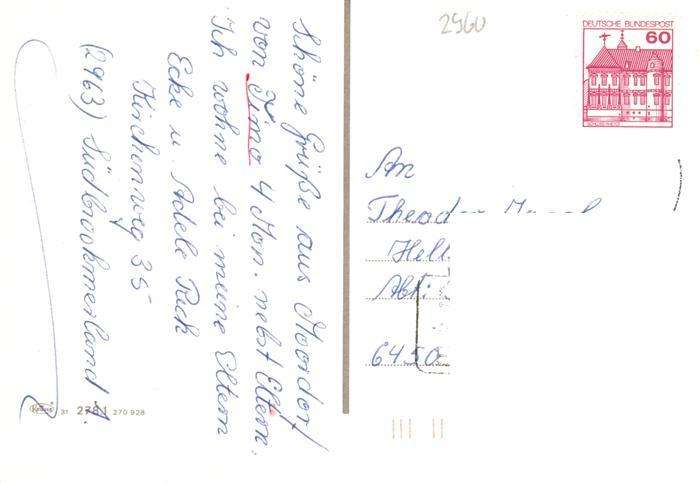 Schöne Grüße aus Moordorf
von Timo 4 Mon. nebst Eltern.
Ich wohne bei meine Eltern
Ecke u. Adele Puck
Kirchenweg 35
(2963) Südbrookmerland 1.
Krüger 31 2781 270 928
2960
DEUTSCHE BUNDESPOST
60
An
Theod
Hell
Abt.
6450